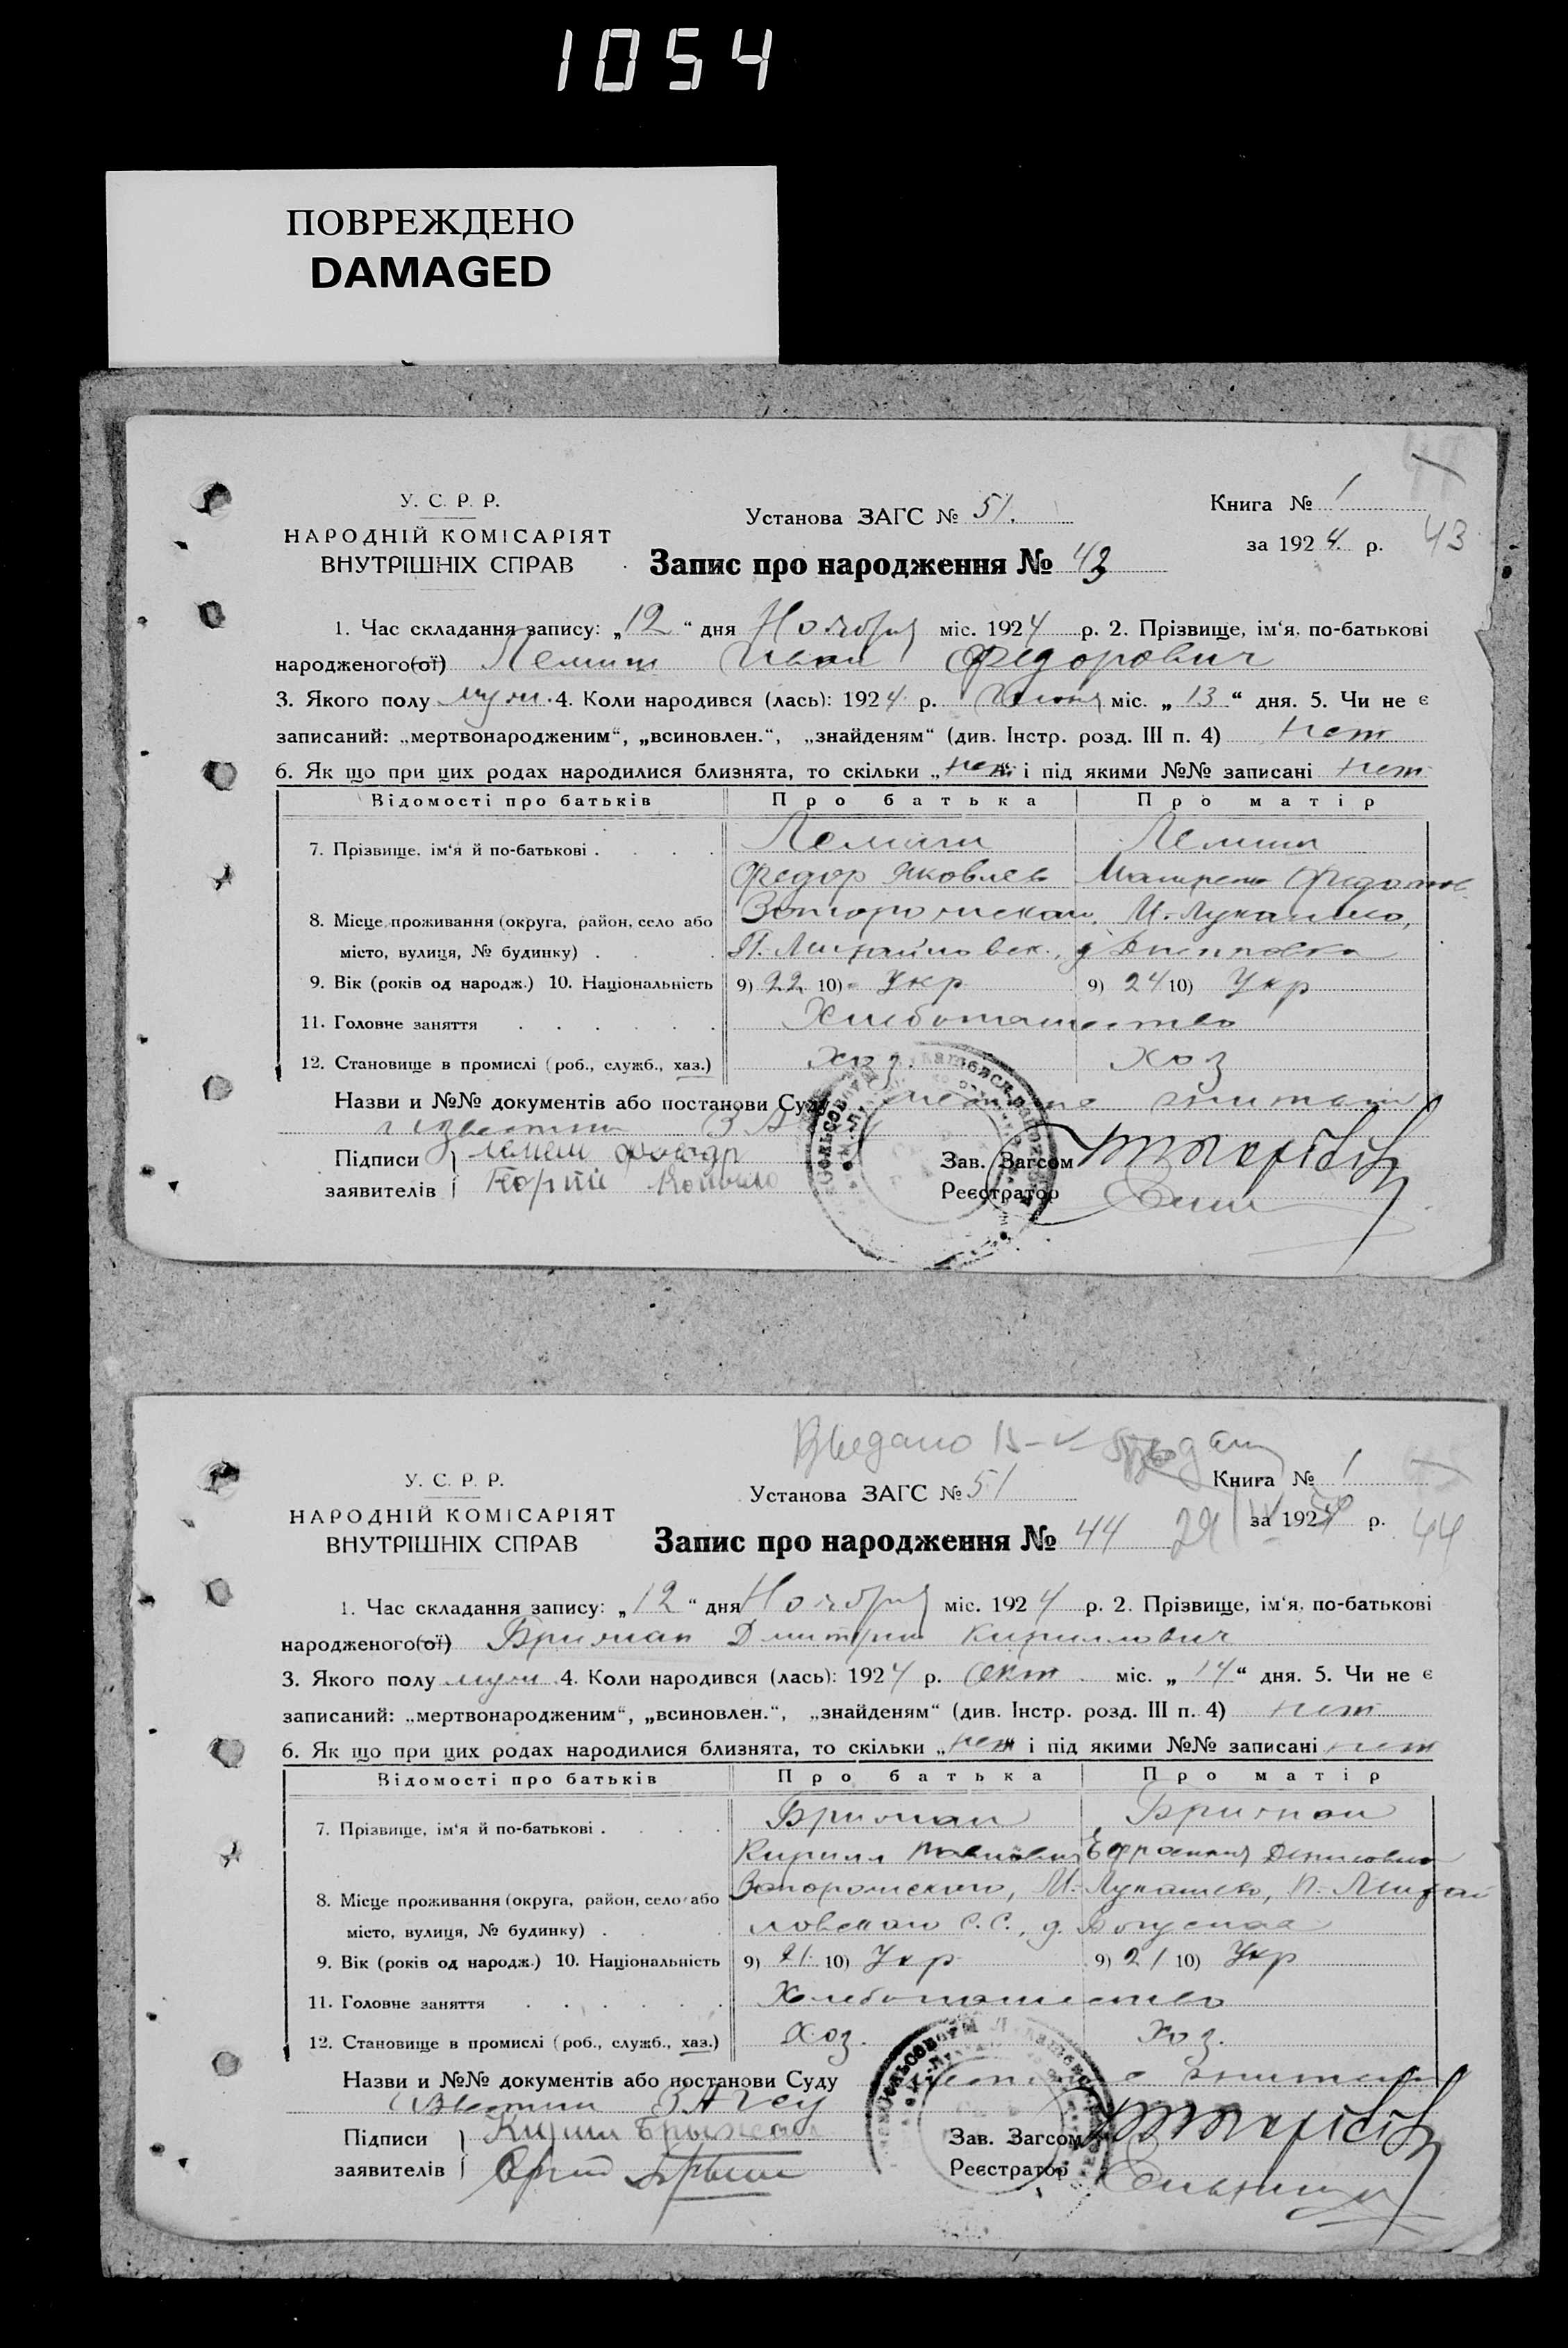 1054
ПОВРЕЖДЕНО
DAMAGED
У. С. Р. Р.
НАРОДНІЙ КОМІСАРІЯТ
ВНУТРІШНІХ СПРАВ
Установа ЗАГС № 51.
Книга № 1
за 1924 р. 43
Запис про народження № 43
1. Час складання запису: „12" дня Ноября міс. 1924 р. 2. Прізвище, ім'я, по-батькові
народженого(ої) Лемиш Иван Федорович
3. Якого полу муж. 4. Коли народився (лась): 1924 р. Июня міс. „13" дня. 5. Чи не є
записаний: „мертвонародженим", „всиновлен.", „знайденям" (див. Інстр. розд. III п. 4) нет
6. Як що при цих родах народилися близнята, то скільки „нет" і під якими №№ записані нет
Відомості про батьків Про батька Про матір
7. Прізвище, ім'я й по-батькові . . . . Лемиш Лемиш
Федор Яковлев
8. Місце проживання (округа, район, село або М-Лукашево,
місто, вулиця, № будинку) . . П. Михайловск.
9. Вік (років од народж.) 10. Національність 9) 22 10) Укр 9) 24 10) Укр
11. Головне заняття . . . . . . Хлебопашество
12. Становище в промислі (роб., служб., хаз.) хоз. хоз
Назви и №№ документів або постанови Суду
Підписи
заявителів
Зав. Загсом
Реєстратор
У. С. Р. Р.
НАРОДНІЙ КОМІСАРІЯТ
ВНУТРІШНІХ СПРАВ
Установа ЗАГС № 51
Книга № 1
за 1924 р. 44
Запис про народження № 44
1. Час складання запису: „12" дня Ноября міс. 1924 р. 2. Прізвище, ім'я, по-батькові
народженого(ої) Брижан Дмитрий Кириллович
3. Якого полу муж. 4. Коли народився (лась): 1924 р. Окт. міс. „14" дня. 5. Чи не є
записаний: „мертвонародженим", „всиновлен.", „знайденям" (див. Інстр. розд. III п. 4) нет
6. Як що при цих родах народилися близнята, то скільки „нет" і під якими №№ записані нет
Відомості про батьків Про батька Про матір
7. Прізвище, ім'я й по-батькові . . . . Брижан Брижан
Кирилл Денисовна
8. Місце проживання (округа, район, село або Запорожского, М-Лукашево, П-Михай
місто, вулиця, № будинку) . . ловского С.С., д.
9. Вік (років од народж.) 10. Національність 9) 21 10) Укр 9) 21 10) Укр
11. Головне заняття . . . . . . Хлебопашество
12. Становище в промислі (роб., служб., хаз.) хоз. хоз.
Назви и №№ документів або постанови Суду
Підписи
заявителів
Зав. Загсом
Реєстратор